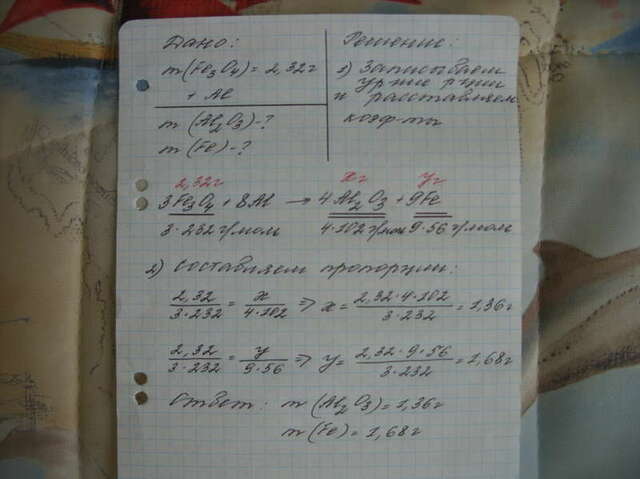 Дано:
m(Fe₃O₄) = 2,32г
+ Al
m(Al₂O₃)-?
m(Fe)-?
Решение:
1) Записываем
ур-ние р-ции
и расставляем
коэф-ты
2,32г xг yг
3Fe₃O₄ + 8Al → 4Al₂O₃ + 9Fe
3·232 г/моль 4·102 г/моль 9·56 г/моль
2) составляем пропорции:
2,32/3·232 = x/4·102 => x = 2,32·4·102/3·232 = 1,36г
2,32/3·232 = y/9·56 => y = 2,32·9·56/3·232 = 1,68г
Ответ: m(Al₂O₃) = 1,36г
m(Fe) = 1,68г